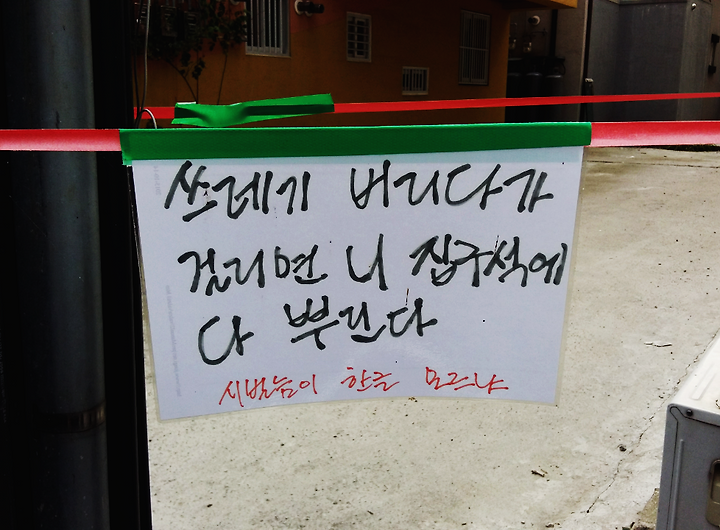 쓰레기 버리다가
걸리면 니 집구석에
다 뿌린다
시벌놈이 한글 모르냐